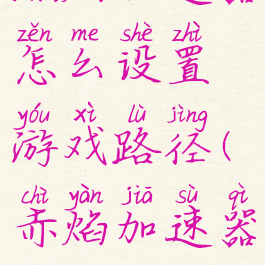 zěn me shè zhì
怎么设置
yóu xì lù jìng
游戏路径(
chì yàn jiā sù qì
赤焰加速器